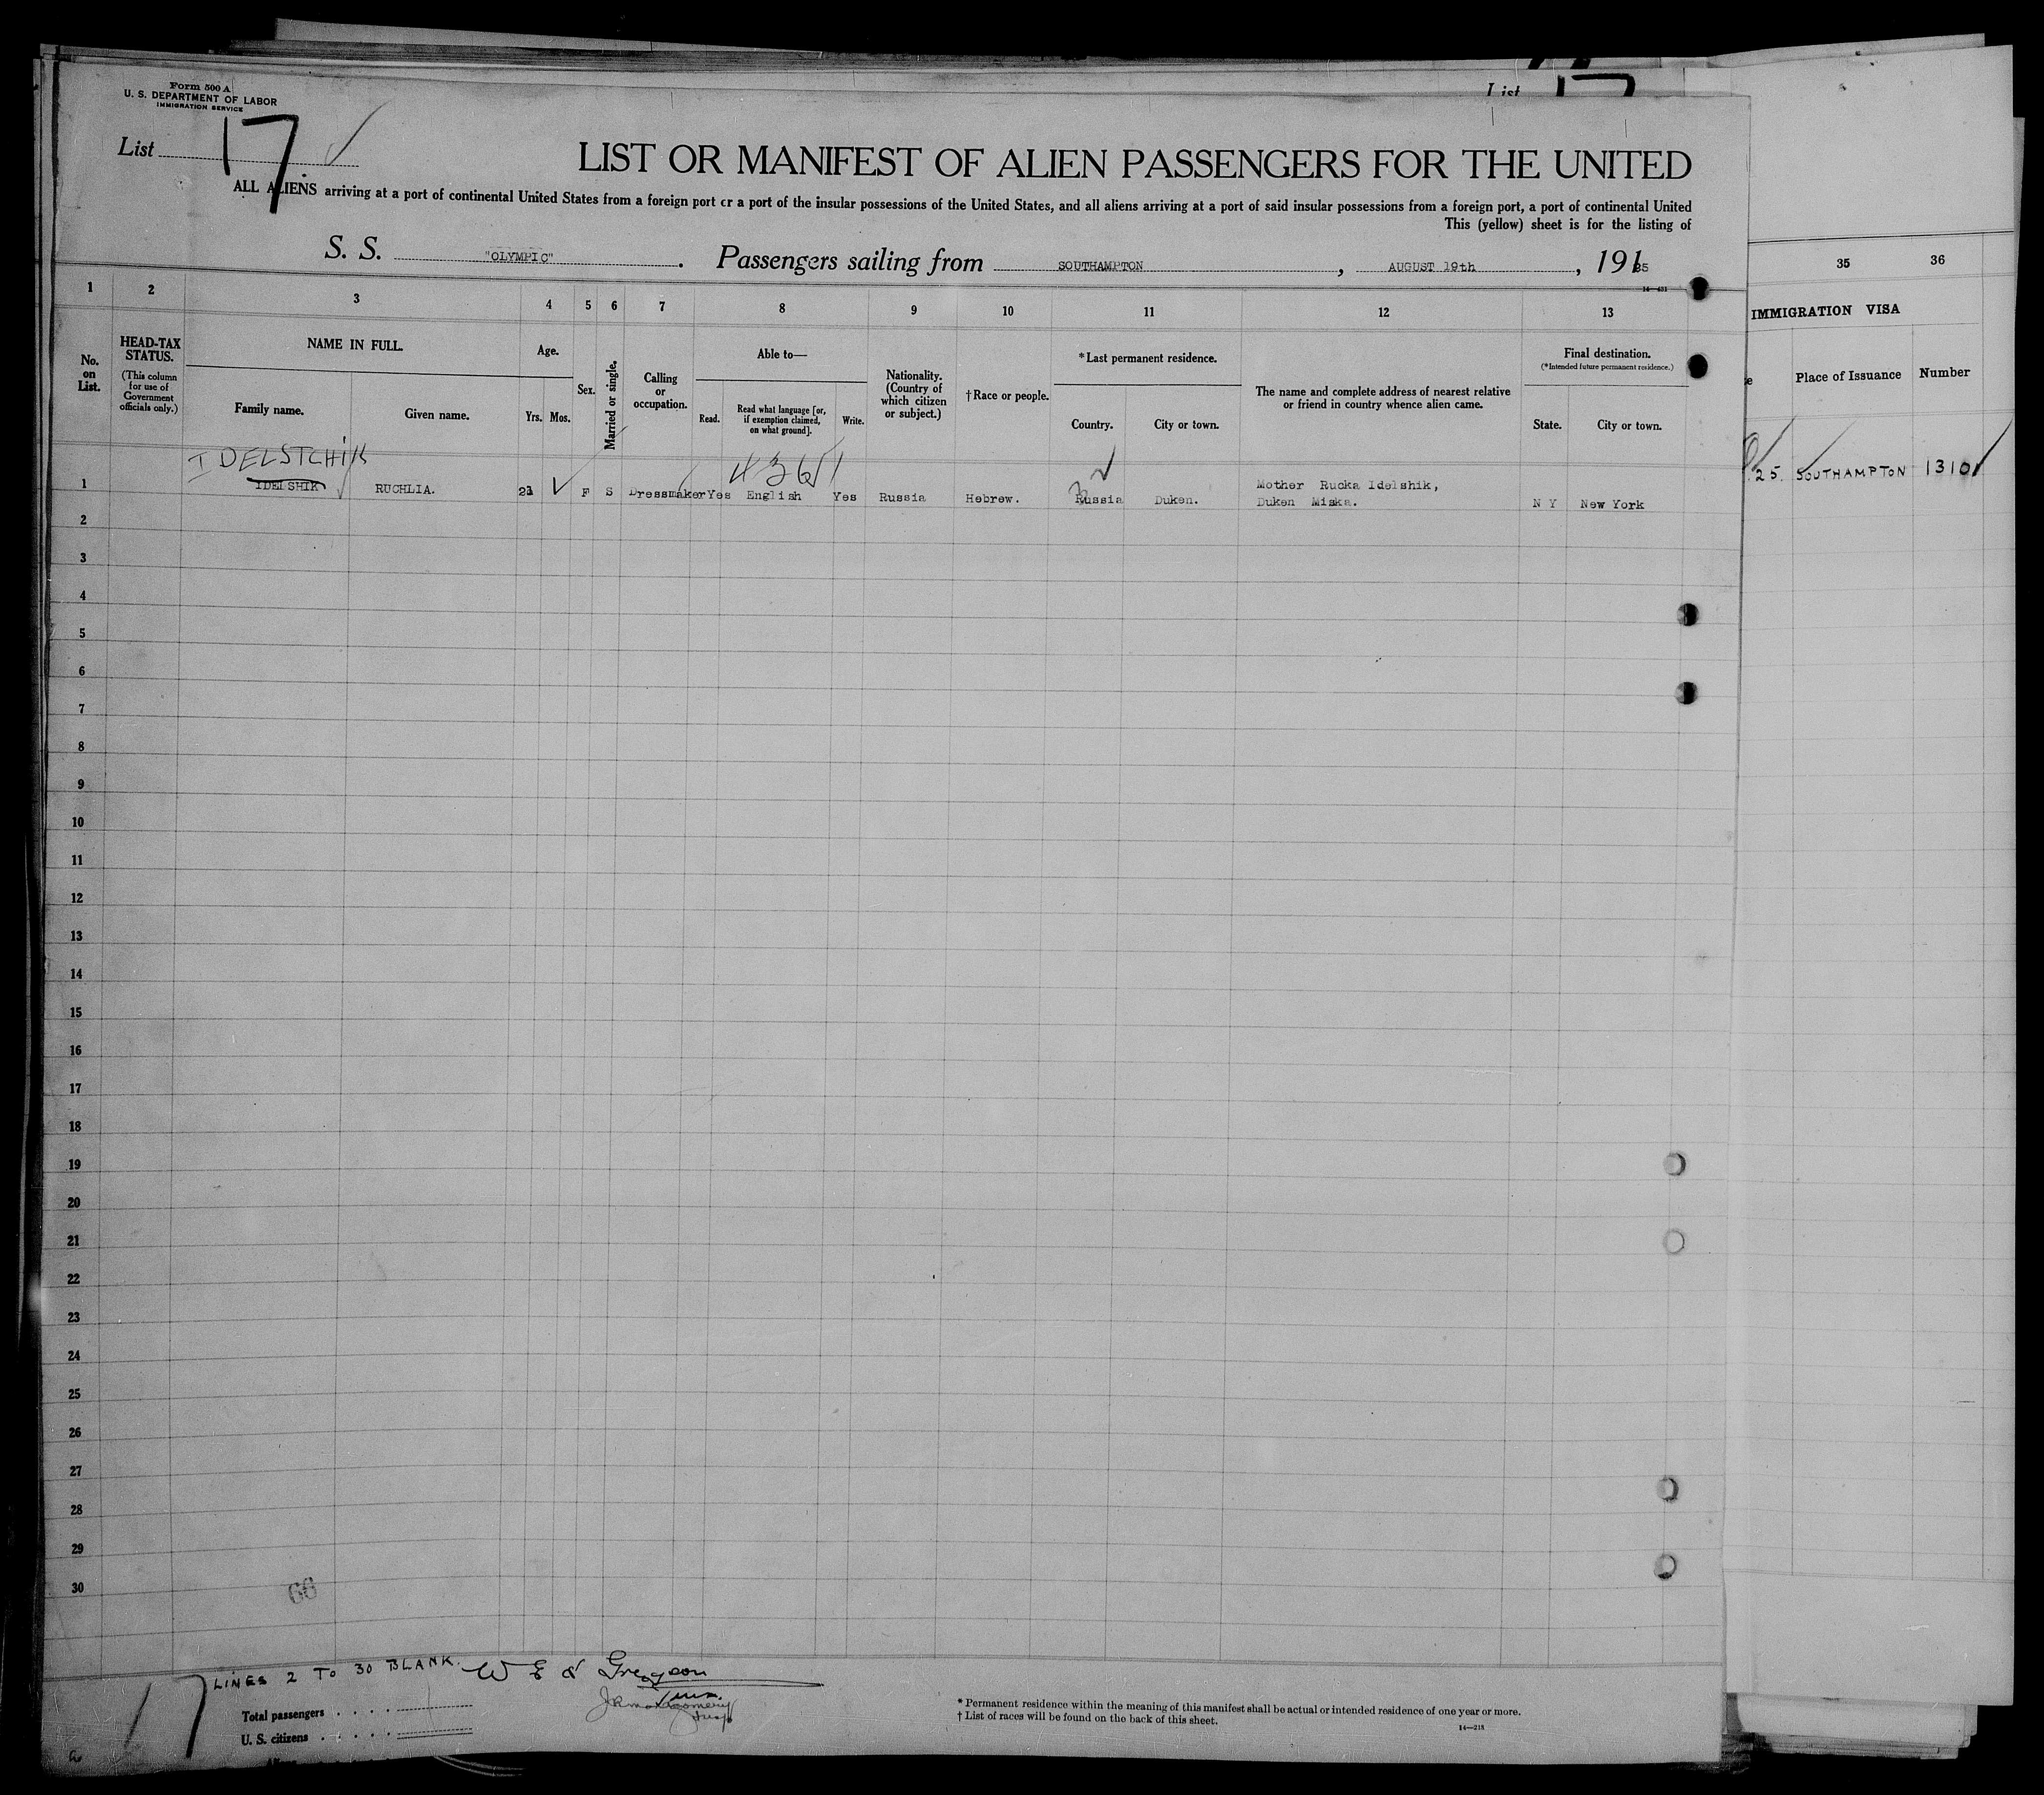 Form 500 A
U. S. DEPARTMENT OF LABOR
IMMIGRATION SERVICE
List
List 17
LIST OR MANIFEST OF ALIEN PASSENGERS FOR THE UNITED
ALL ALIENS arriving at a port of continental United States from a foreign port or a port of the insular possessions of the United States, and all aliens arriving at a port of said insular possessions from a foreign port, a port of continental United
This (yellow) sheet is for the listing of
S. S. "OLYMPIC". Passengers sailing from SOUTHAMPTON, AUGUST 19th, 191 25
14—431
1 2 3 4 5 6 7 8 9 10 11 12 13 35 36
IMMIGRATION VISA
No. on List.
HEAD-TAX STATUS.
(This column for use of Government officials only.)
NAME IN FULL.
Family name.
Given name.
Age.
Yrs. Mos.
Sex.
Married or single.
Calling or occupation.
Able to—
Read.
Read what language [or, if exemption claimed, on what ground].
Write.
Nationality. (Country of which citizen or subject.)
† Race or people.
*Last permanent residence.
Country.
City or town.
The name and complete address of nearest relative or friend in country whence alien came.
Final destination.
(*Intended future permanent residence.)
State.
City or town.
Place of Issuance
Number
IDELSTCHIK
1 IDELSHIK RUCHLIA. F S Dressmaker Yes English Yes Russia Hebrew. Russia Duken. Mother Rucka Idelshik, Duken Miska. N Y New York
25. SOUTHAMPTON 1310
2
3
4
5
6
7
8
9
10
11
12
13
14
15
16
17
18
19
20
21
22
23
24
25
26
27
28
29
30
66
17
LINES 2 TO 30 BLANK.
Total passengers
U. S. citizens
Aliens
* Permanent residence within the meaning of this manifest shall be actual or intended residence of one year or more.
† List of races will be found on the back of this sheet.
14—218